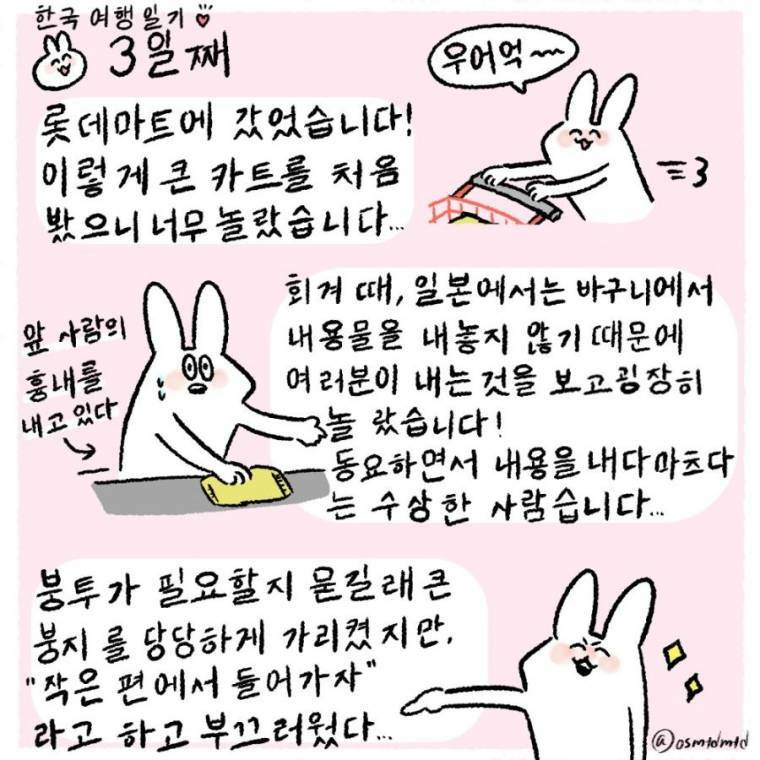 한국 여행 일기
3일째
롯데마트에 갔었습니다!
이렇게 큰 카트를 처음
봤으니 너무 놀랐습니다...
우어억~~
회계 때, 일본에서는 바구니에서
내용물을 내놓지 않기 때문에
여러분이 내는 것을 보고 굉장히
놀랐습니다!
동요하면서 내용을 내다마츠다
는 수상한 사람습니다...
앞 사람의
흉내를
내고 있다
붕투가 필요할지 묻길래 큰
붕지를 당당하게 가리켰지만,
"작은 편에서 들어가자"
라고 하고 부끄러웠다...
@osmtdmtd